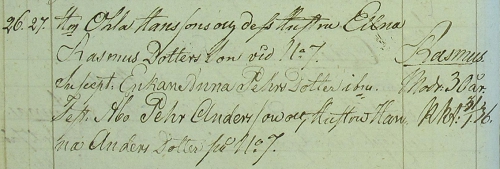 26. 27. Åbo Ohla Hansons och dess Hustru Elena
Rasmus Dotters Son vid No 7. Rasmus
Suscept: Enkan Anna Pehrs Dotter ibm. Modr. 30 år.
Test. Åbo Pehr Andersson och Hustrun Han
na Anders Dotter på No 7.